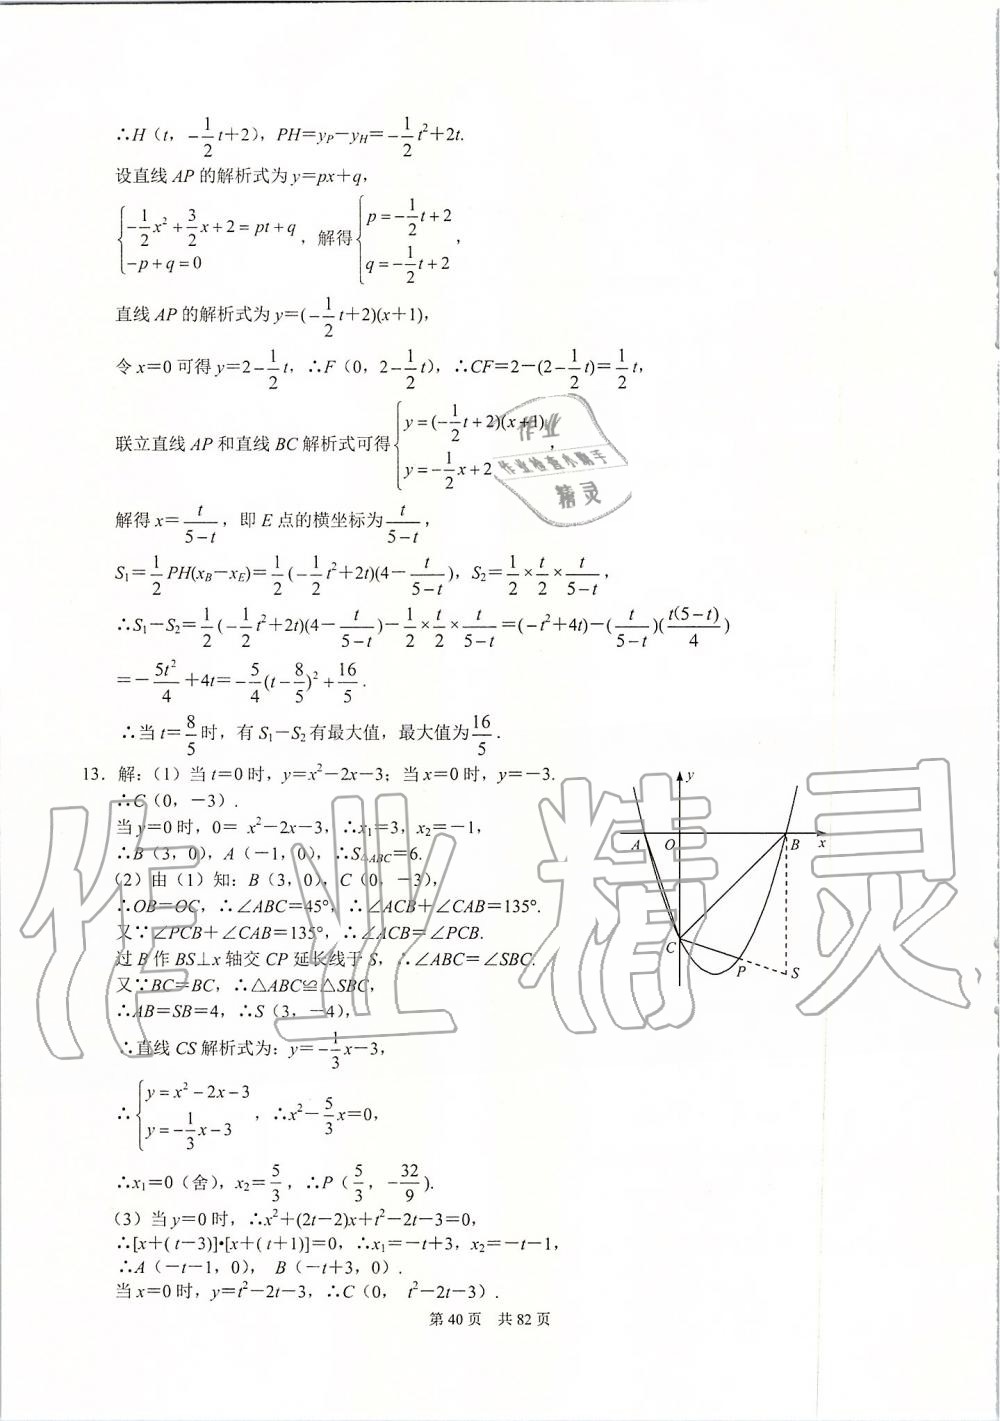 ∴H（t，-1/2 t+2），PH=yP-yH=-1/2 t²+2t.
设直线 AP 的解析式为 y=px+q，
{ -1/2 x²+3/2 x+2=pt+q ; -p+q=0 ，解得 { p=-1/2 t+2 ; q=-1/2 t+2 ，
直线 AP 的解析式为 y=(-1/2 t+2)(x+1)，
令 x=0 可得 y=2-1/2 t，∴F（0，2-1/2 t），∴CF=2-(2-1/2 t)=1/2 t，
联立直线 AP 和直线 BC 解析式可得 { y=(-1/2 t+2)(x+1) ; y=-1/2 x+2 ，
解得 x=t/(5-t)，即 E 点的横坐标为 t/(5-t)，
S₁=1/2 PH(xB-xE)=1/2(-1/2 t²+2t)(4-t/(5-t))，S₂=1/2×t/2×t/(5-t)，
∴S₁-S₂=1/2(-1/2 t²+2t)(4-t/(5-t))-1/2×t/2×t/(5-t)=(-t²+4t)-(t/(5-t))(t(5-t)/4)
=-5t²/4+4t=-5/4(t-8/5)²+16/5.
∴当 t=8/5 时，有 S₁-S₂ 有最大值，最大值为 16/5.
13．解:（1）当 t=0 时，y=x²-2x-3；当 x=0 时，y=-3.
∴C（0，-3）.
当 y=0 时，0= x²-2x-3，∴x₁=3，x₂=-1，
∴B（3，0），A（-1，0），∴S△ABC=6.
（2）由（1）知：B（3，0），C（0，-3），
∴OB=OC，∴∠ABC=45°，∴∠ACB+∠CAB=135°.
又∵∠PCB+∠CAB=135°，∴∠ACB=∠PCB.
过 B 作 BS⊥x 轴交 CP 延长线于 S，∴∠ABC=∠SBC.
又∵BC=BC，∴△ABC≌△SBC，
∴AB=SB=4，∴S（3，-4），
∴直线 CS 解析式为：y=-1/3 x-3，
∴ { y=x²-2x-3 ; y=-1/3 x-3 ，∴x²-5/3 x=0，
∴x₁=0（舍），x₂=5/3，∴P（5/3，-32/9）.
（3）当 y=0 时，∴x²+(2t-2)x+t²-2t-3=0，
∴[x+( t-3)]•[x+( t+1)]=0，∴x₁=-t+3，x₂=-t-1，
∴A（-t-1，0）， B（-t+3，0）.
当 x=0 时，y=t²-2t-3，∴C（0， t²-2t-3）.
y
A O B x
C P S
第 40 页 共 82 页
作业
作业检查小助手
精灵
作业精灵